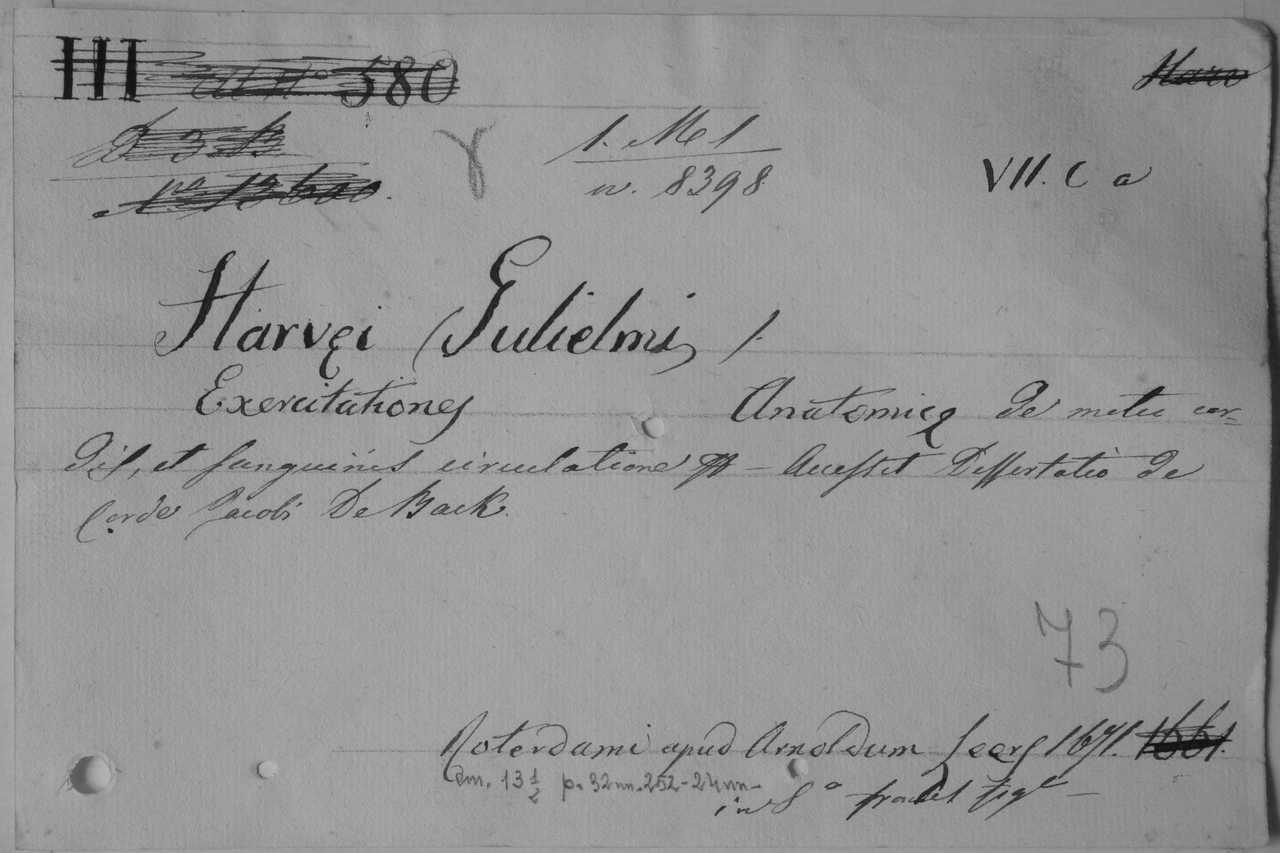 III 580
1. M 1
n. 8398
VII. C a
γ
Harvęi (Gulielmi) /.
Exercitationes Anatomicę de motu cor=
dis, et sanguinis circulatione – Accessit Dissertatio de
Corde Jacobi De Back.
73
Roterdami apud Arnoldum Leers 1671. 1661.
cm. 13 1/2 p. 32nn.252-24nn-
in 8°